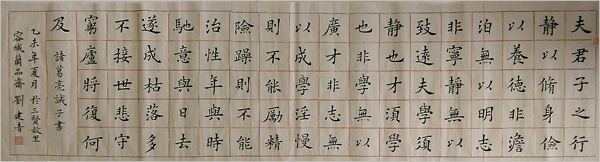 夫君子之行
静以脩身儉
以養德非澹
泊無以明志
非寧静無以
致遠夫學須
静也才須學
也非學無以
廣才非志無
以成學淫慢
則不能勵精
險躁則不能
治性年與時
馳意與日去
遂成枯落多
不接世悲守
窮廬將復何
及
諸葛亮誡子書
乙未年夏月於三賢故里
容城蘭品齋劉建青